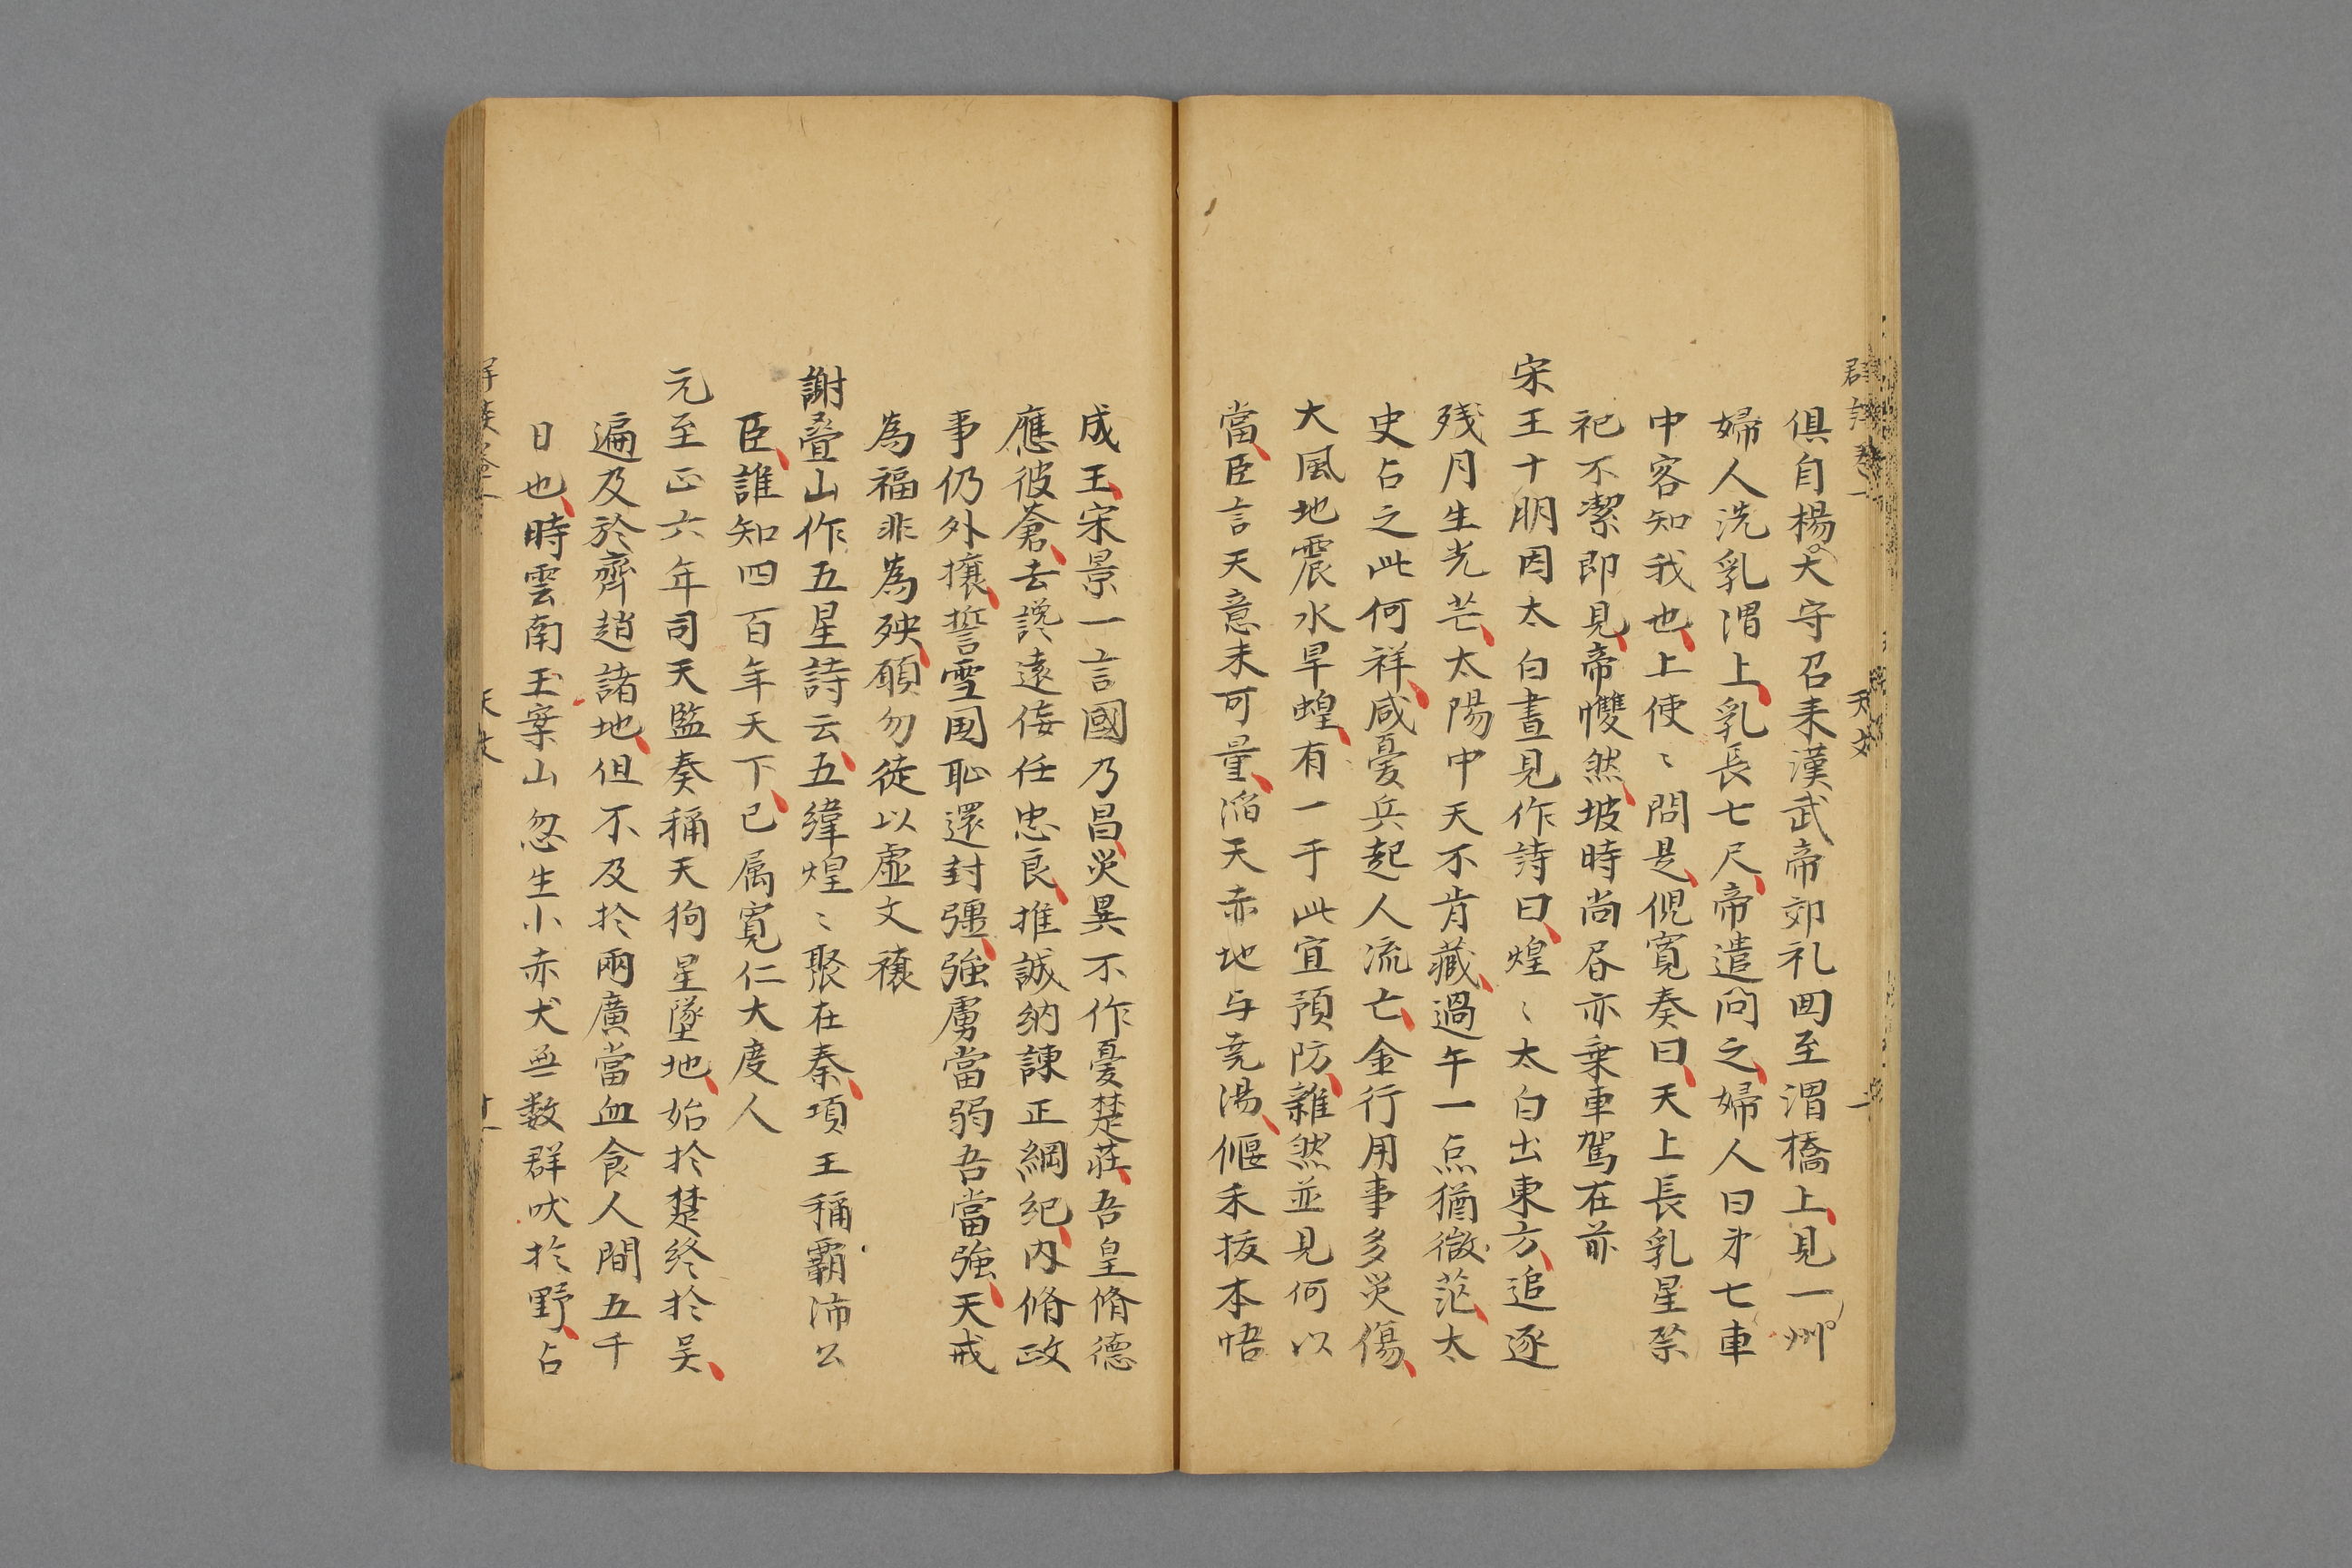 俱自楊州大守召来漢武帝郊礼囬至渭橋上見一
婦人洗乳渭上乳長七尺帝遣问之婦人曰苐七車
中客知我也上使〻問是倪寬奏曰天上長乳星祭
祀不潔即見帝㦬然坡時尚昏亦乗車駕在前
宋王十朋因太白晝見作詩曰煌〻太白出東方追逐
残月生光芒太陽中天不肯藏過午一点猶微茫太
史占之此何祥咸憂兵起人流亡金行用事多災傷
大風地震水旱蝗有一于此宜預防雜然並見何以
當臣言天意未可量滔天赤地与堯湯偃禾拔本悟
成王宋景一言國乃昌災異不作憂楚莊吾皇脩德
應彼蒼去讒遠佞任忠良推誠納諫正綱紀内脩政
事仍外攘誓雪囯恥還封疆強虜當弱吾當強天戒
為福非為殃願勿徒以虛文禳
謝疊山作五星詩云五緯煌〻聚在秦項王稱霸沛公
臣誰知四百年天下已属寬仁大度人
元至正六年司天監奏稱天狗星墜地始於楚終於吴
遍及於齊趙諸地但不及於兩廣當血食人間五千
日也時雲南玉案山忽生小赤犬無数群吠於野占